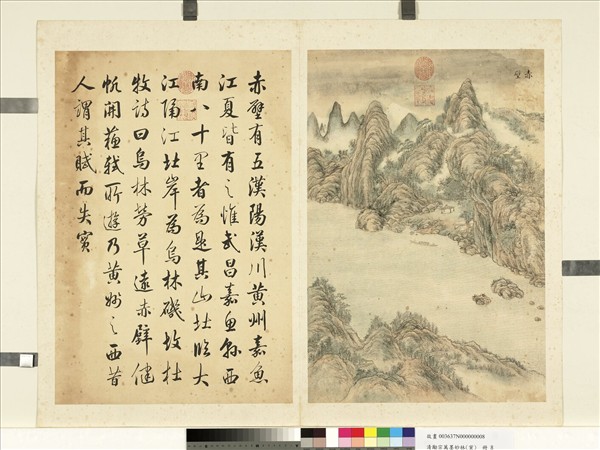 赤壁
赤壁有五漢陽漢川黃州嘉魚
江夏皆有之惟武昌嘉魚縣西
南八十里者為是其山北臨大
江隔江北岸為烏林磯故杜
牧詩曰烏林芳草遠赤壁健
帆開蘇軾所遊乃黃州之西昔
人謂其賦而失實
故畫 003637N000000008